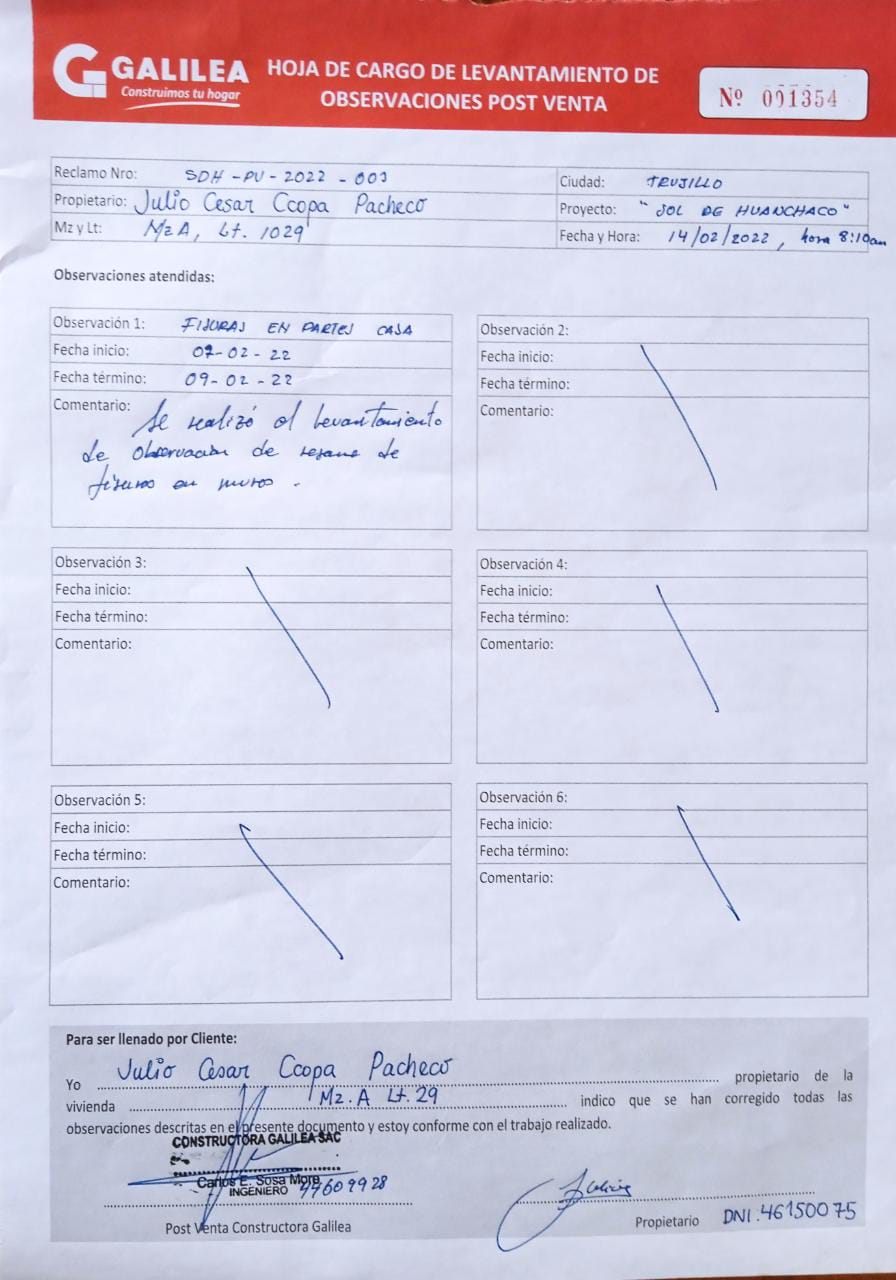 GALILEA
Construimos tu hogar
HOJA DE CARGO DE LEVANTAMIENTO DE
OBSERVACIONES POST VENTA
Nº 001354
Reclamo Nro: SDH-PU-2022-003
Ciudad: TRUJILLO
Propietario: Julio Cesar Ccopa Pacheco
Proyecto: "SOL DE HUANCHACO"
Mz y Lt: Mz A, Lt. 1029
Fecha y Hora: 14/02/2022, hora 8:10am
Observaciones atendidas:
Observación 1: FISURAS EN PARTES CASA
Fecha inicio: 07-02-22
Fecha término: 09-02-22
Comentario: Se realizó el levantamiento
de observación de resane de
fisuras en muros.
Observación 2:
Fecha inicio:
Fecha término:
Comentario:
Observación 3:
Fecha inicio:
Fecha término:
Comentario:
Observación 4:
Fecha inicio:
Fecha término:
Comentario:
Observación 5:
Fecha inicio:
Fecha término:
Comentario:
Observación 6:
Fecha inicio:
Fecha término:
Comentario:
Para ser llenado por Cliente:
Yo Julio Cesar Ccopa Pacheco propietario de la
vivienda Mz. A Lt. 29 indico que se han corregido todas las
observaciones descritas en el presente documento y estoy conforme con el trabajo realizado.
CONSTRUCTORA GALILEA SAC
Carlos E. Sosa More
INGENIERO 47609928
Post Venta Constructora Galilea
Propietario DNI. 46150075